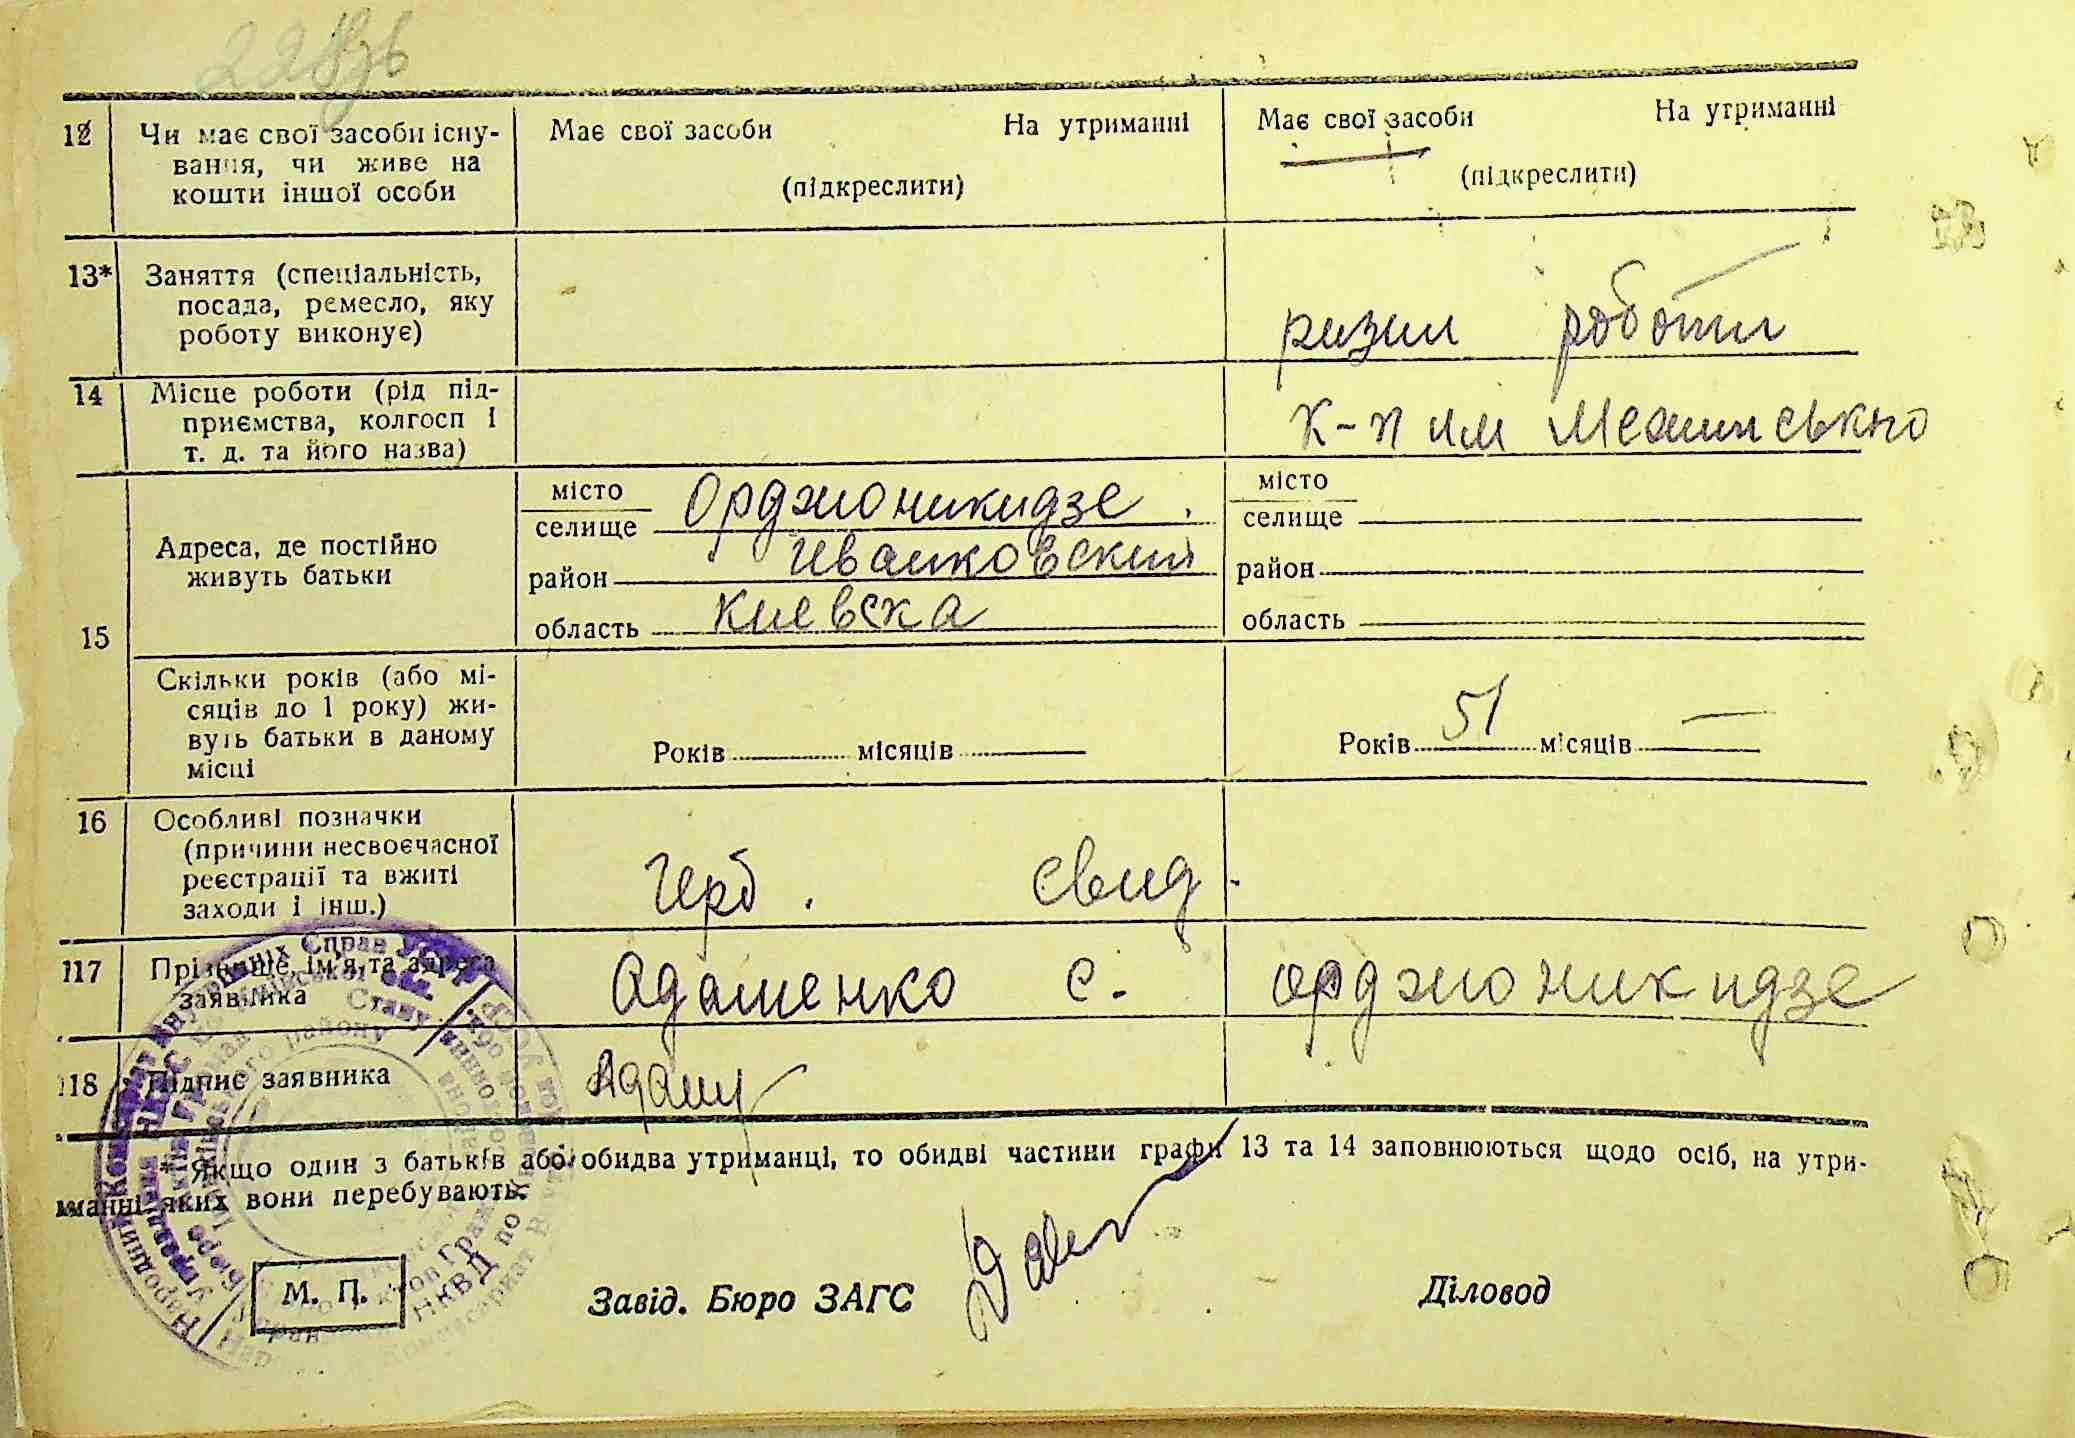 12 Чи має свої засоби існу-
вання, чи живе на
кошти іншої особи
Має свої засоби На утриманні
(підкреслити)
Має свої засоби На утриманні
(підкреслити)
13* Заняття (спеціальність,
посада, ремесло, яку
роботу виконує)
ризни роботи
14 Місце роботи (рід під-
приємства, колгосп і
т. д. та його назва)
к-п им
15
Адреса, де постійно
живуть батьки
місто
селище Орджоникидзе
район Иванковский
область Киевска
місто
селище
район
область
Скільки років (або мі-
сяців до 1 року) жи-
вуть батьки в даному
місці
Років місяців
Років 51 місяців —
16 Особливі позначки
(причини несвоєчасної
реєстрації та вжиті
заходи і інш.)
герб. свид.
117 Прізвище, ім'я, та адреса
заявника
Адаменко С. Орджоникидзе
118 Підпис заявника
* Якщо один з батьків або обидва утриманці, то обидві частини графи 13 та 14 заповнюються щодо осіб, на утри-
манні яких вони перебувають.
М. П.
Завід. Бюро ЗАГС
Діловод